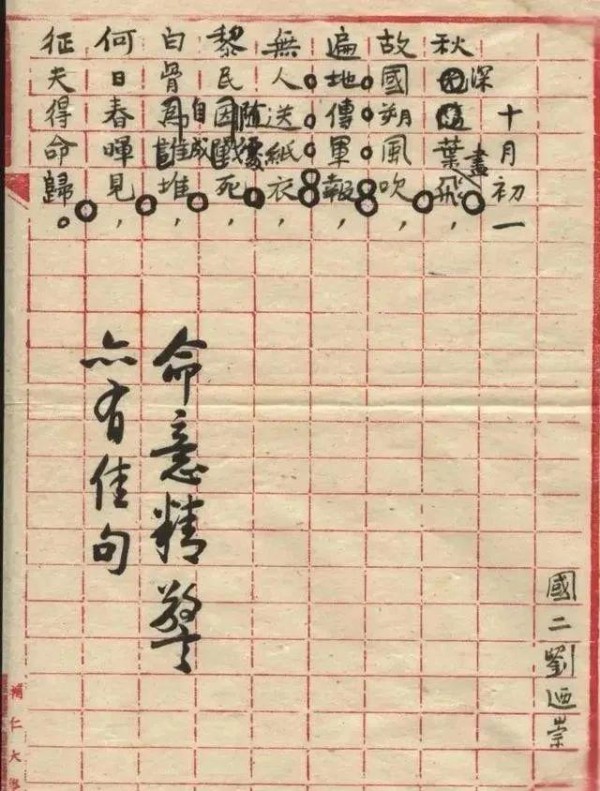 十月初一
秋深葉盡飛，
故國朔風吹，
遍地傳軍報，
無人送紙衣，
黎民隨處死，
白骨自成堆，
何日春暉見，
征夫得命歸。
命意精警
亦有佳句
國二劉迺崇
輔仁大學